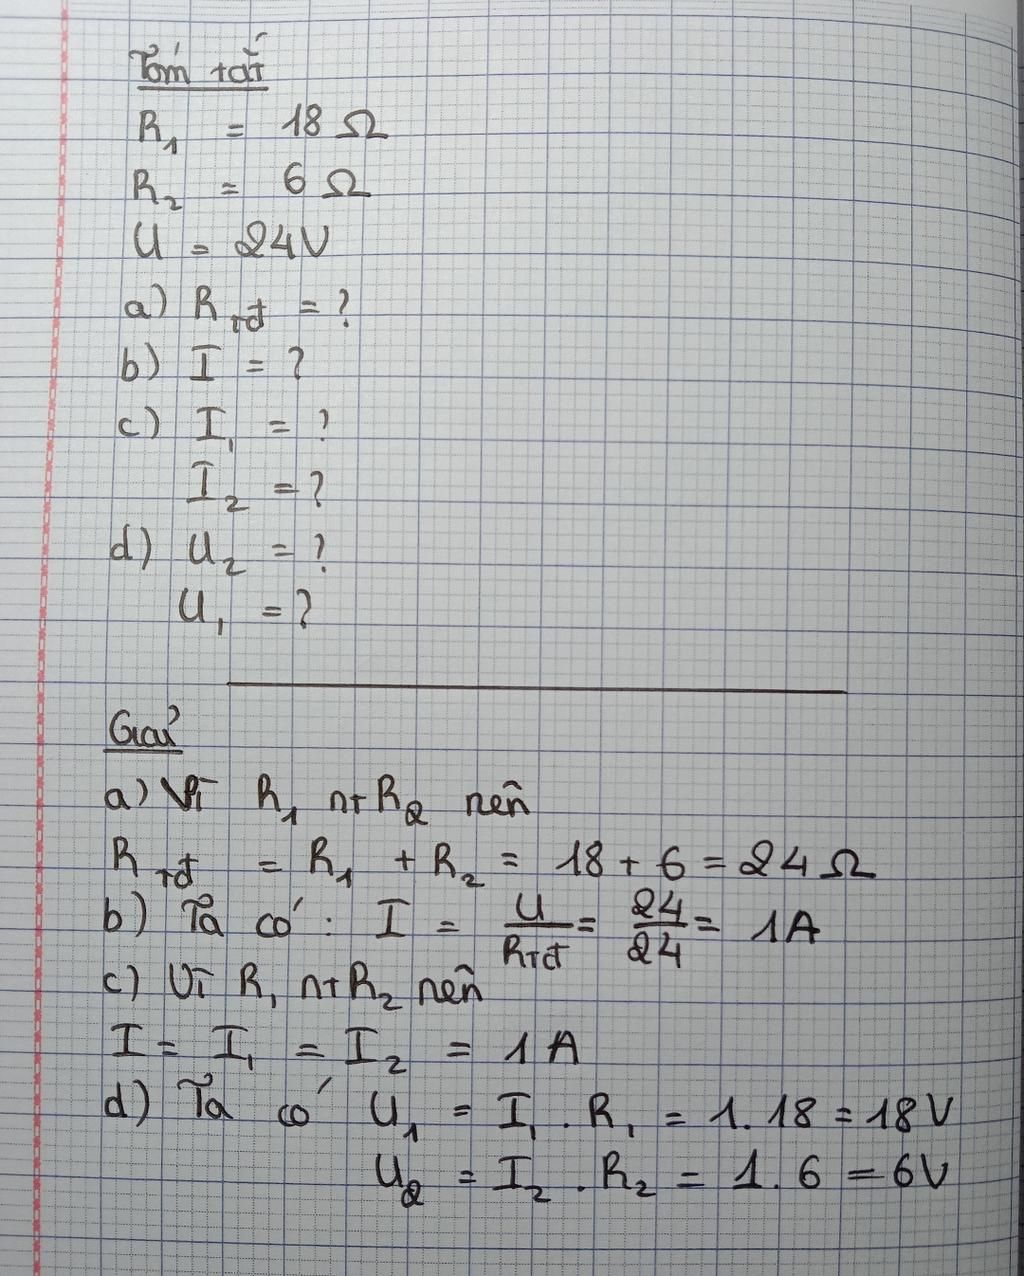 Tóm tắt
R₁ = 18 Ω
R₂ = 6 Ω
U = 24V
a) R_tđ = ?
b) I = ?
c) I₁ = ?
I₂ = ?
d) U₂ = ?
U₁ = ?
Giải
a) Vì R₁ nt R₂ nên
R_tđ = R₁ + R₂ = 18 + 6 = 24 Ω
b) Ta có: I = U/R_tđ = 24/24 = 1A
c) Vì R₁ nt R₂ nên
I = I₁ = I₂ = 1A
d) Ta có U₁ = I₁ . R₁ = 1.18 = 18V
U₂ = I₂ . R₂ = 1.6 = 6V